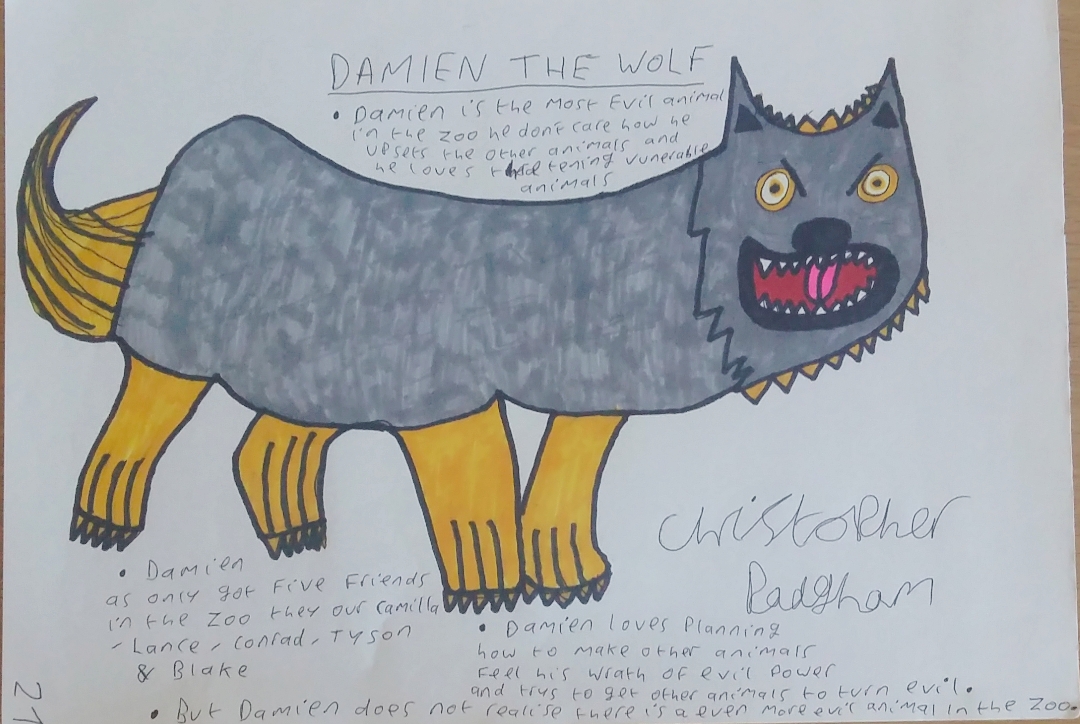 DAMIEN THE WOLF
• Damien is the most Evil animal
in the zoo he don't care how he
upsets the other animals and
he loves tening vunerable
animals
Christopher
Padgham
• Damien
as only got Five Friends
in the zoo they our Camilla
- Lance, Conrad, Tyson
& Blake
• Damien loves Planning
how to make other animals
Feel his wrath of evil Power
and trys to get other animals to turn evil.
• But Damien does not realise there is a even more evil animal in the zoo.
21